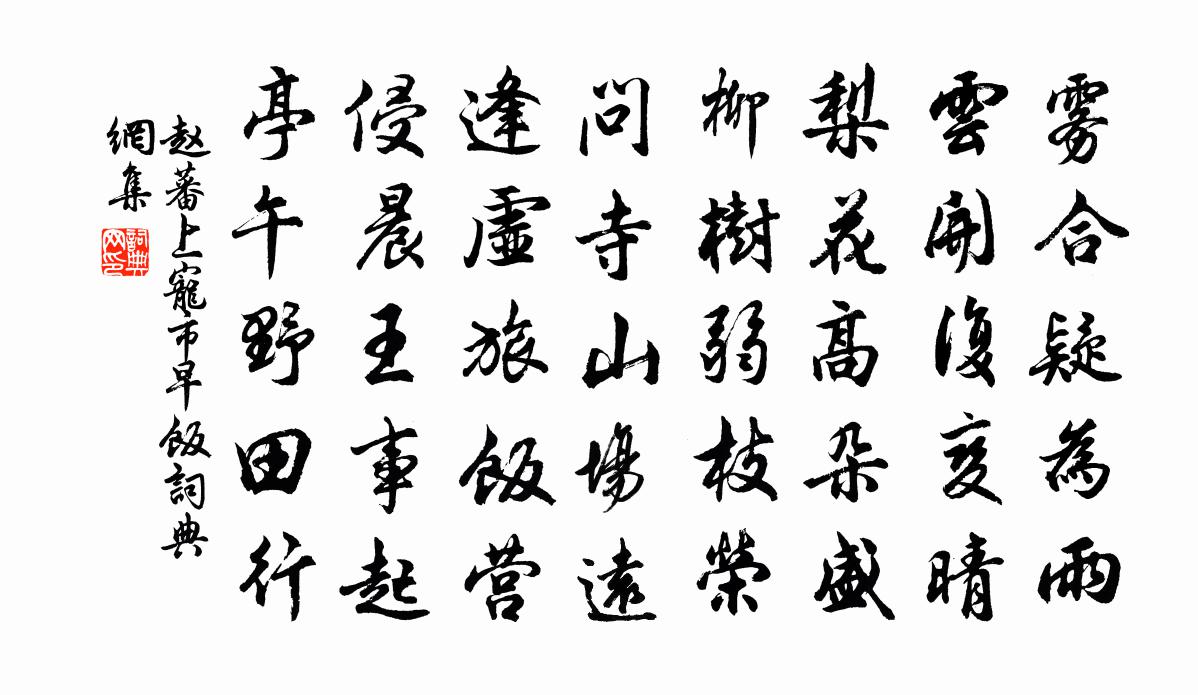 雾合疑為雨
雲開復变晴
梨花高朵盛
柳樹弱枝榮
問寺山場遠
逢虛旅飯营
侵晨王事起
亭午野田行
赵蕃上寵市早飯詞典
網集
詞典网印